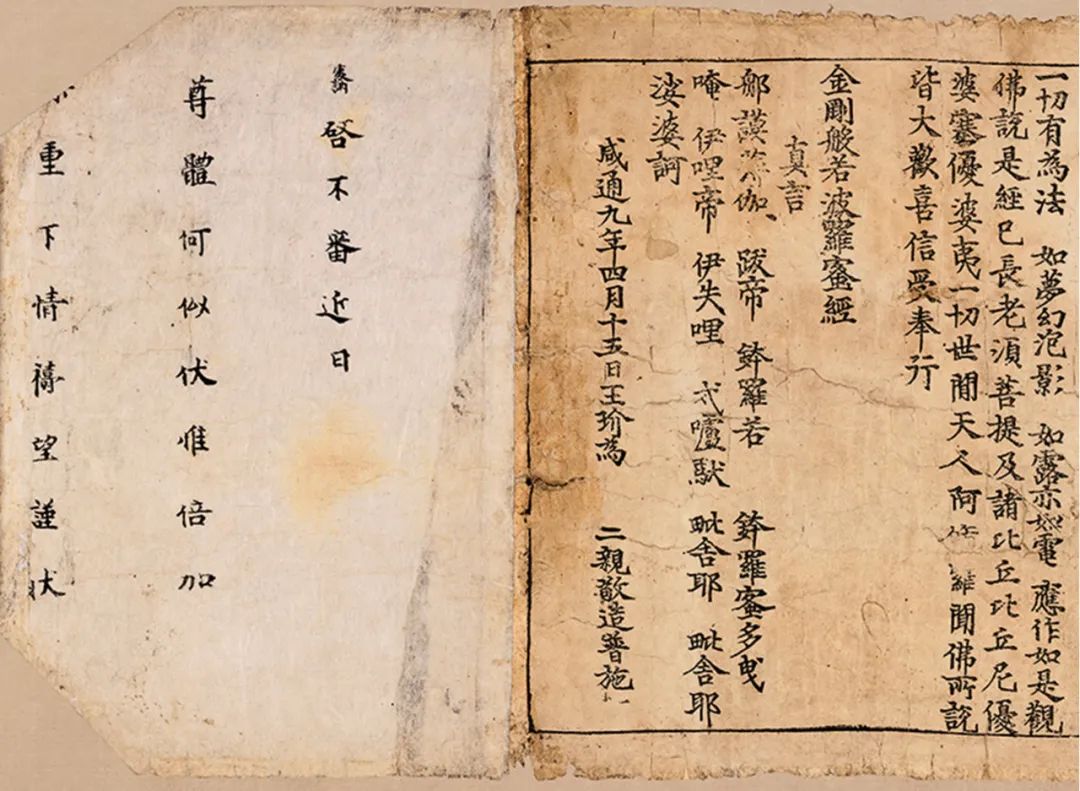 一切有為法 如夢幻泡影 如露亦如電 應作如是觀
佛說是經已長老須菩提及諸比丘比丘尼優
婆塞優婆夷一切世間天人阿修羅聞佛所說
皆大歡喜信受奉行
金剛般若波羅蜜經
真言
那謨伽 跋帝 鉢羅若 鉢羅蜜多曳
唵 伊哩帝 伊失哩 式嚧馱 毗舍耶 毗舍耶
娑婆訶
咸通九年四月十五日王玠為 二親敬造普施
啓不審近日
尊體何似伏惟倍加
重下情禱望謹狀